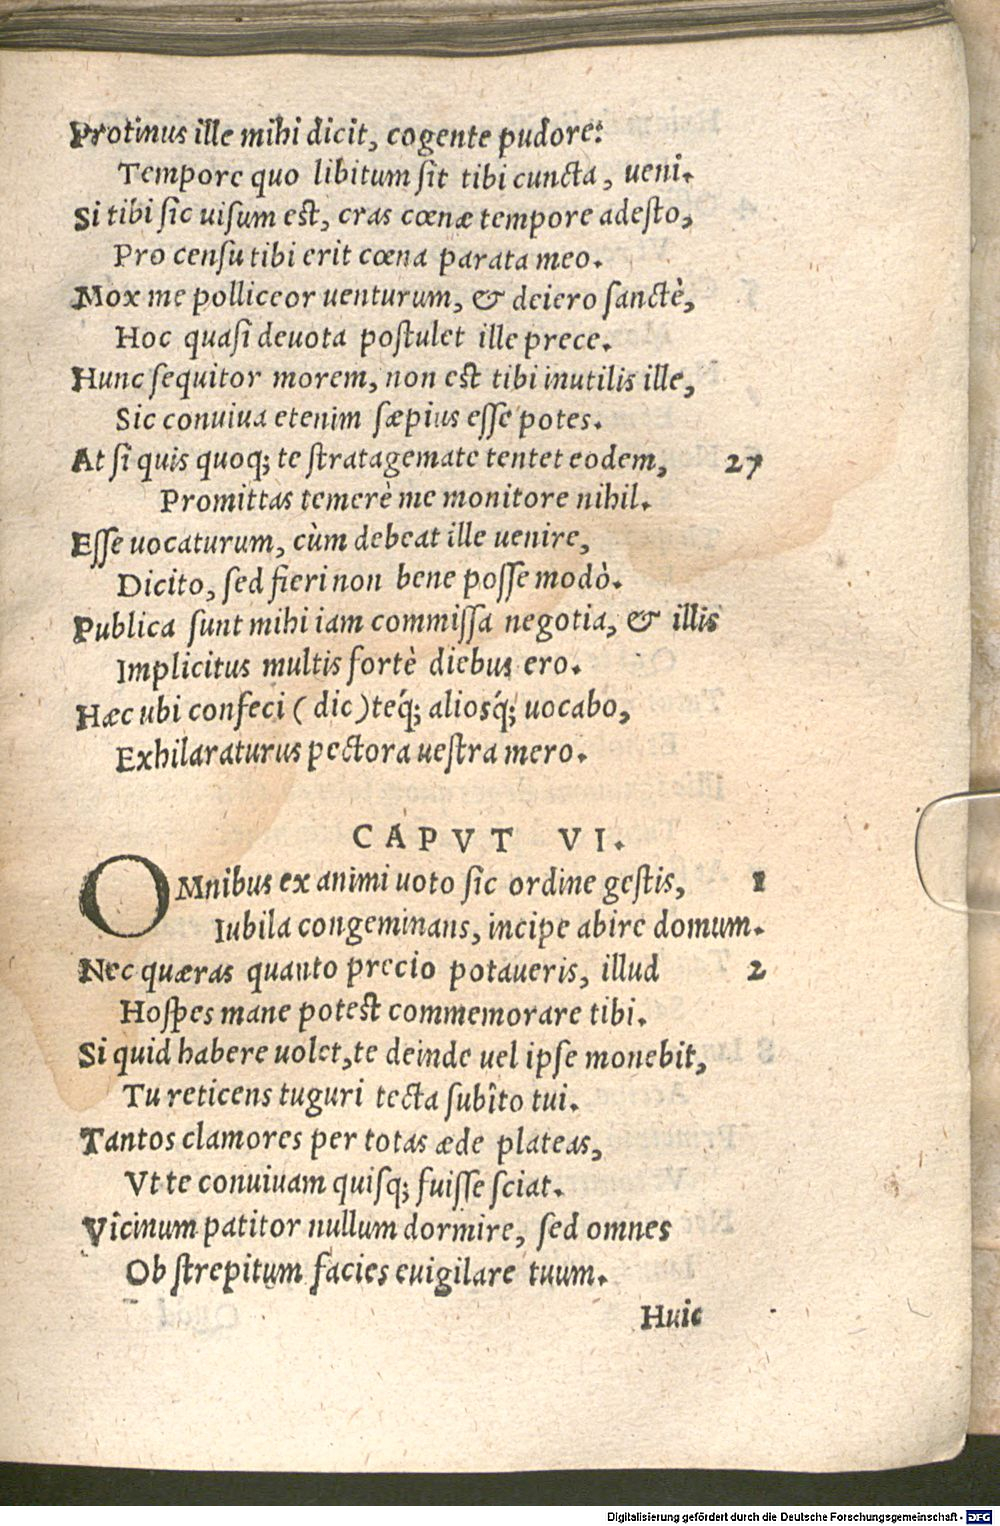 Protinus ille mihi dicit, cogente pudore:
Tempore quo libitum sit tibi cuncta, veni.
Si tibi sic uisum est, cras cœnæ tempore adesto,
Pro censu tibi erit cœna parata meo.
Mox me polliceor uenturum, & deiero sanctè,
Hoc quasi deuota postulet ille prece.
Hunc sequitor morem, non est tibi inutilis ille,
Sic conuiua etenim sæpius esse potes.
At si quis quoq; te stratagemate tentet eodem, 27
Promittas temerè me monitore nihil.
Esse uocaturum, cùm debeat ille uenire,
Dicito, sed fieri non bene posse modò.
Publica sunt mihi iam commissa negotia, & illis
Implicitus multis fortè diebus ero.
Hæc ubi confeci (dic) teq́; aliosq́; uocabo,
Exhilaraturus pectora uestra mero.
CAPVT VI.
OMnibus ex animi uoto sic ordine gestis, 1
Iubila congeminans, incipe abire domum.
Nec quæras quanto precio potaueris, illud 2
Hospes mane potest commemorare tibi.
Si quid habere uolet, te deinde uel ipse monebit,
Tu reticens tuguri tecta subîto tui.
Tantos clamores per totas æde plateas,
Vt te conuiuam quisq; fuisse sciat.
Vicinum patitor nullum dormire, sed omnes
Ob strepitum facies euigilare tuum.
Huic
Digitalisierung gefördert durch die Deutsche Forschungsgemeinschaft - DFG